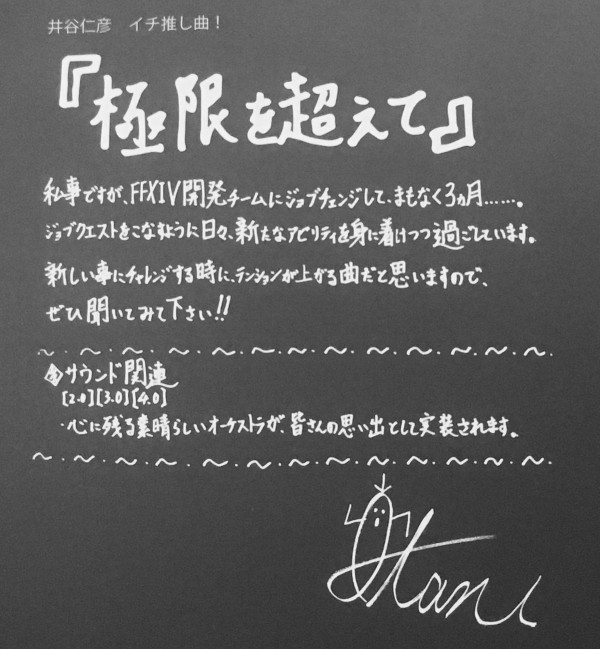 井谷仁彦 イチ推し曲！
『極限を超えて』
私事ですが、FFXIV開発チームにジョブチェンジして、まもなく3ヵ月……。
ジョブクエストをこなすように日々、新たなアビリティを身に着けつつ過ごしています。
新しい事にチャレンジする時に、テンションが上がる曲だと思いますので、
ぜひ聞いてみて下さい!!
サウンド関連
[2.0][3.0][4.0]
・心に残る素晴らしいオーケストラが、皆さんの思い出として実装されます。
Itani